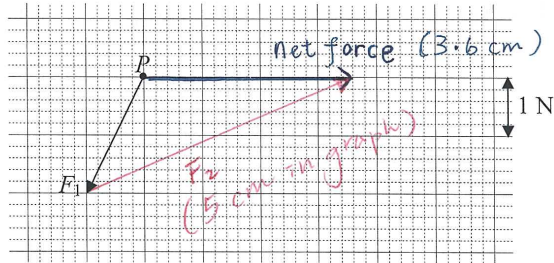 net force (3.6 cm)
P
1 N
F₁
F₂
(5 cm in graph)